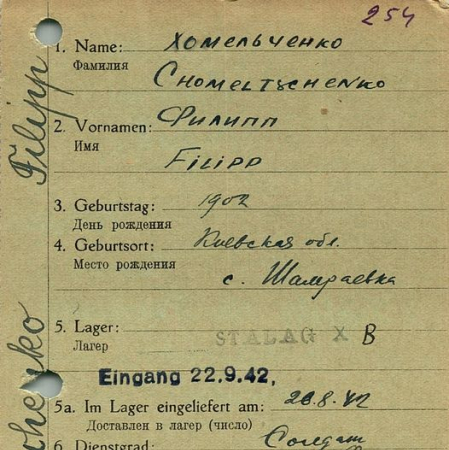 254
1. Name: Хомельченко
Фамилия
Chomeltschenko
2. Vornamen: Филипп
Имя
Filipp
3. Geburtstag: 1902
День рождения
4. Geburtsort: Киевская обл.
Место рождения
с. Шамраевка
5. Lager: STALAG X B
Лагер
Eingang 22.9.42,
5a. Im Lager eingeliefert am: 28.8.42
Доставлен в лагер (число)
6. Dienstgrad: Солдат
Filipp
henko